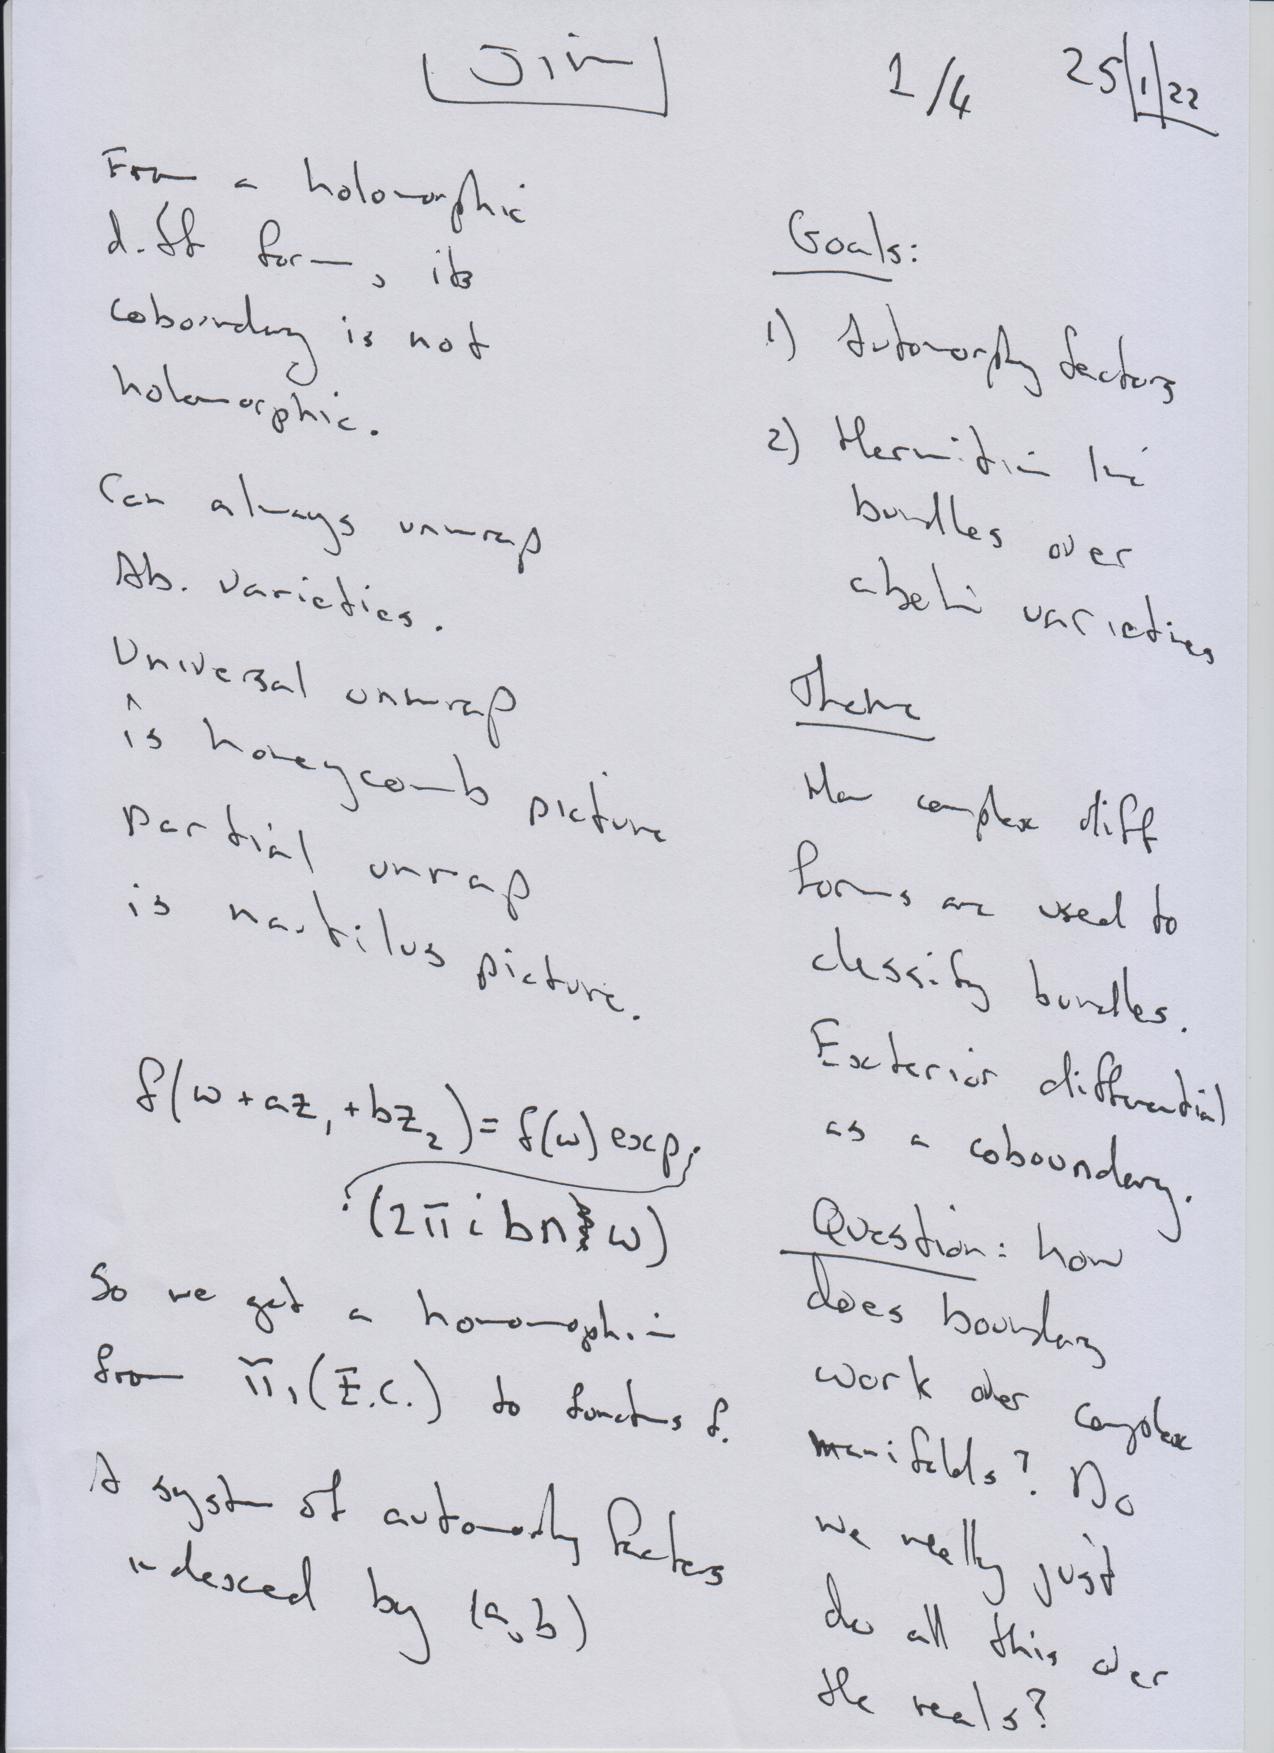 Jim
1/4
25/1/22
From a holomorphic
diff form, its
coboundary is not
holomorphic.
Can always unwrap
Ab. varieties.
Universal unwrap
is honeycomb picture
partial unrap
is nautilus picture.
f(w + az₁ + bz₂) = f(w) exp
(2πi bn w)
So we get a homomorphism
from π₁(E.C.) to functions f.
A system of automorphy factors
indexed by (a,b)
Goals:
1) Automorphy factors
2) Hermitian line
bundles over
abelian varieties
Theme
How complex diff
forms are used to
classify bundles.
Exterior differential
as a coboundary.
Question: how
does boundary
work over complex
manifolds? Do
we really just
do all this over
the reals?